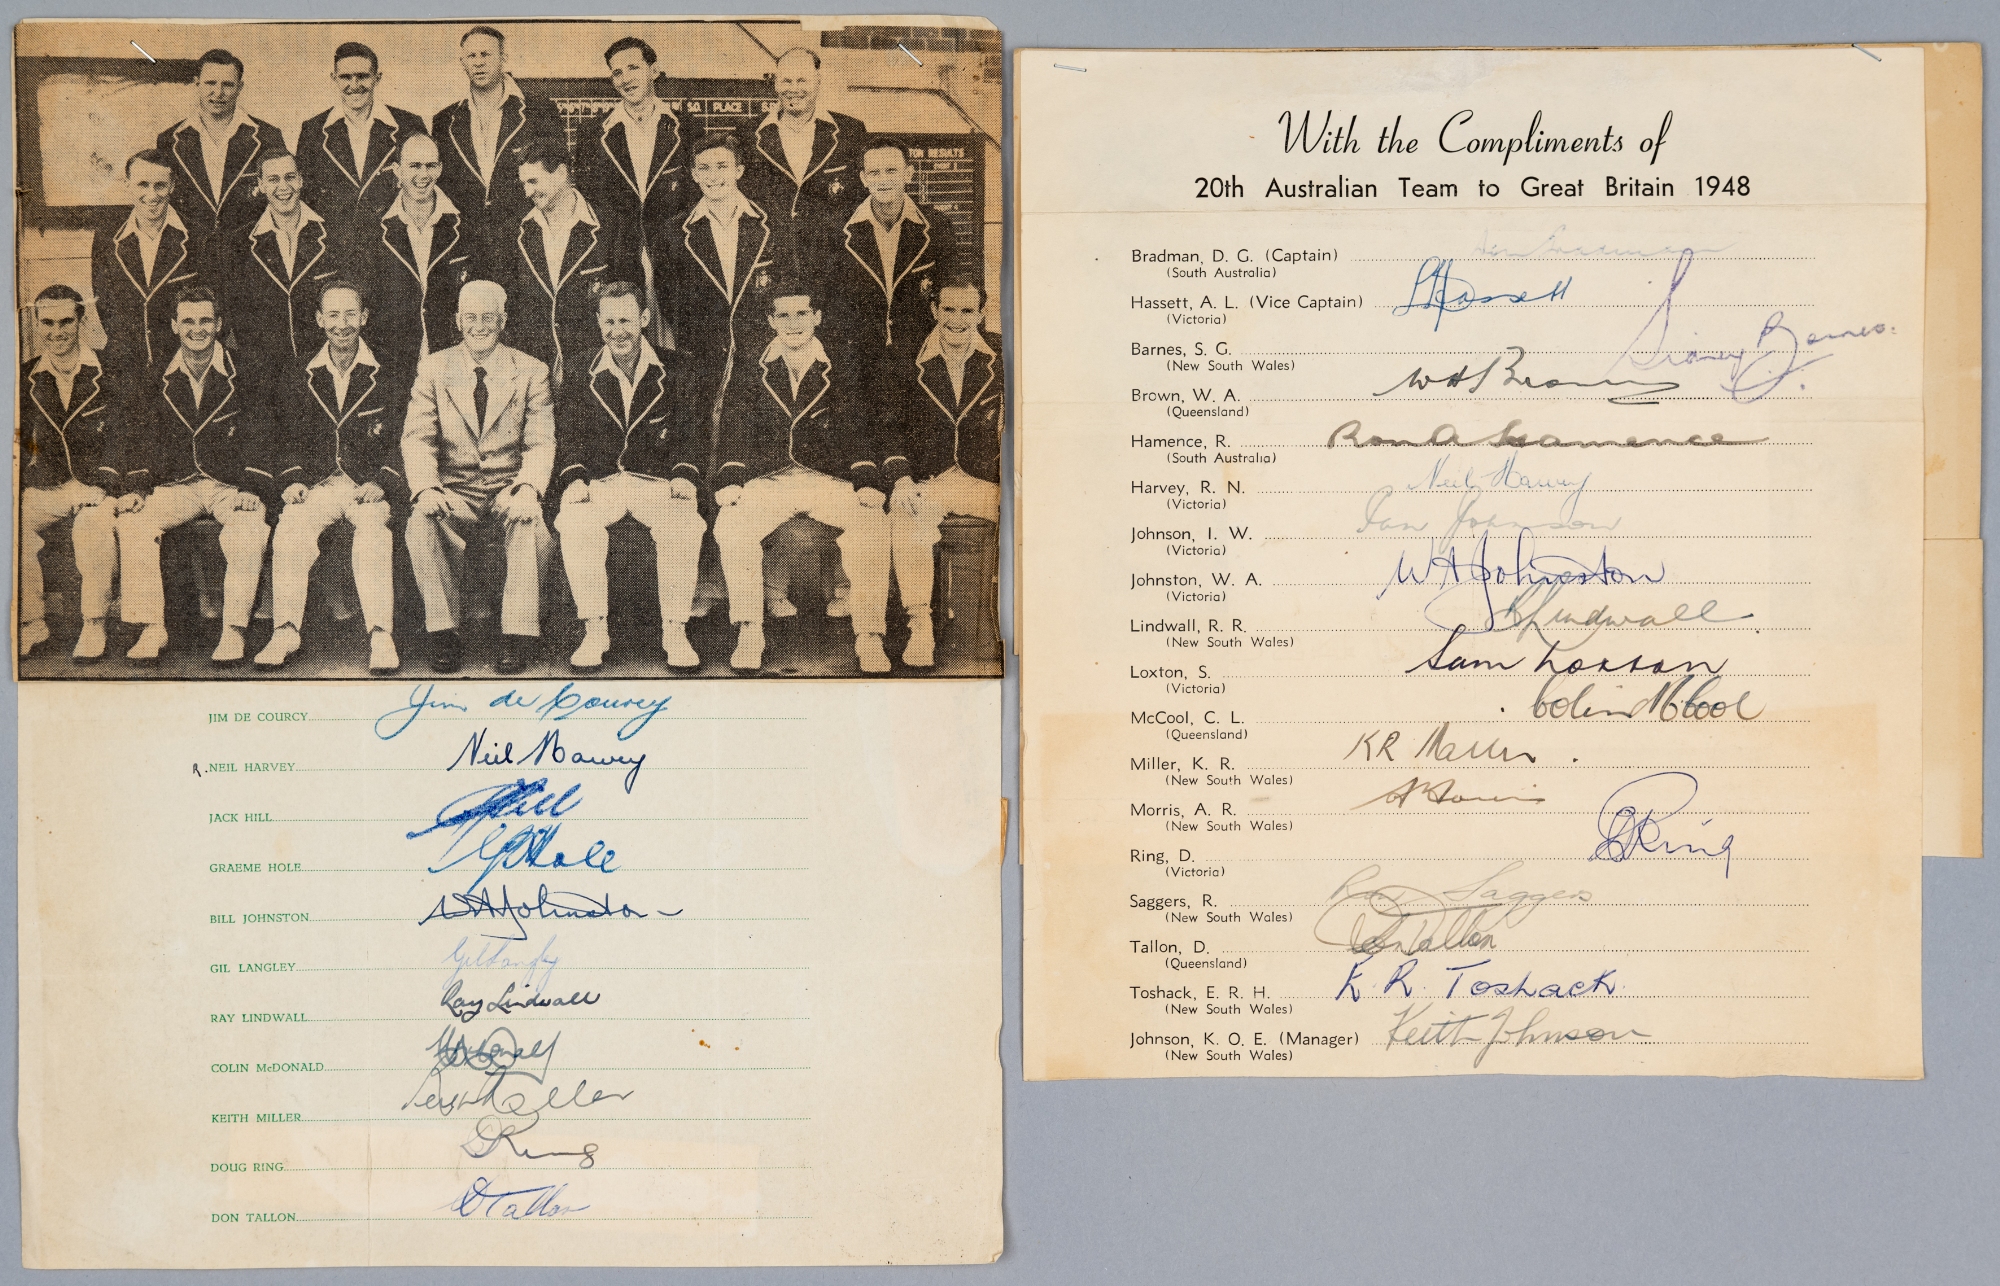 S.O. PLACE
TON RESULTS
JIM DE COURCY Jim de Courcy
R. NEIL HARVEY Neil Harvey
JACK HILL JHill
GRAEME HOLE GBHole
BILL JOHNSTON WAJohnston
GIL LANGLEY Gil Langley
RAY LINDWALL Ray Lindwall
COLIN McDONALD
KEITH MILLER Keith Miller
DOUG RING DRing
DON TALLON DTallon
With the Compliments of
20th Australian Team to Great Britain 1948
Bradman, D. G. (Captain) Don Bradman
(South Australia)
Hassett, A. L. (Vice Captain) LHassett
(Victoria)
Barnes, S. G. Sidney Barnes.
(New South Wales)
Brown, W. A. WABrown
(Queensland)
Hamence, R. Ron A Hamence
(South Australia)
Harvey, R. N. Neil Harvey
(Victoria)
Johnson, I. W. Ian Johnson
(Victoria)
Johnston, W. A. WAJohnston
(Victoria)
Lindwall, R. R. RLindwall
(New South Wales)
Loxton, S. Sam Loxton
(Victoria)
McCool, C. L. Colin McCool
(Queensland)
Miller, K. R. KR Miller
(New South Wales)
Morris, A. R. AMorris
(New South Wales)
Ring, D. DRing
(Victoria)
Saggers, R. Ron Saggers
(New South Wales)
Tallon, D. Don Tallon
(Queensland)
Toshack, E. R. H. E. R. Toshack.
(New South Wales)
Johnson, K. O. E. (Manager) Keith Johnson
(New South Wales)